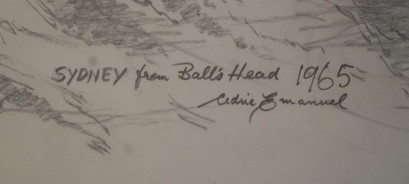 SYDNEY from Ball's Head 1965
Cedric Emanuel